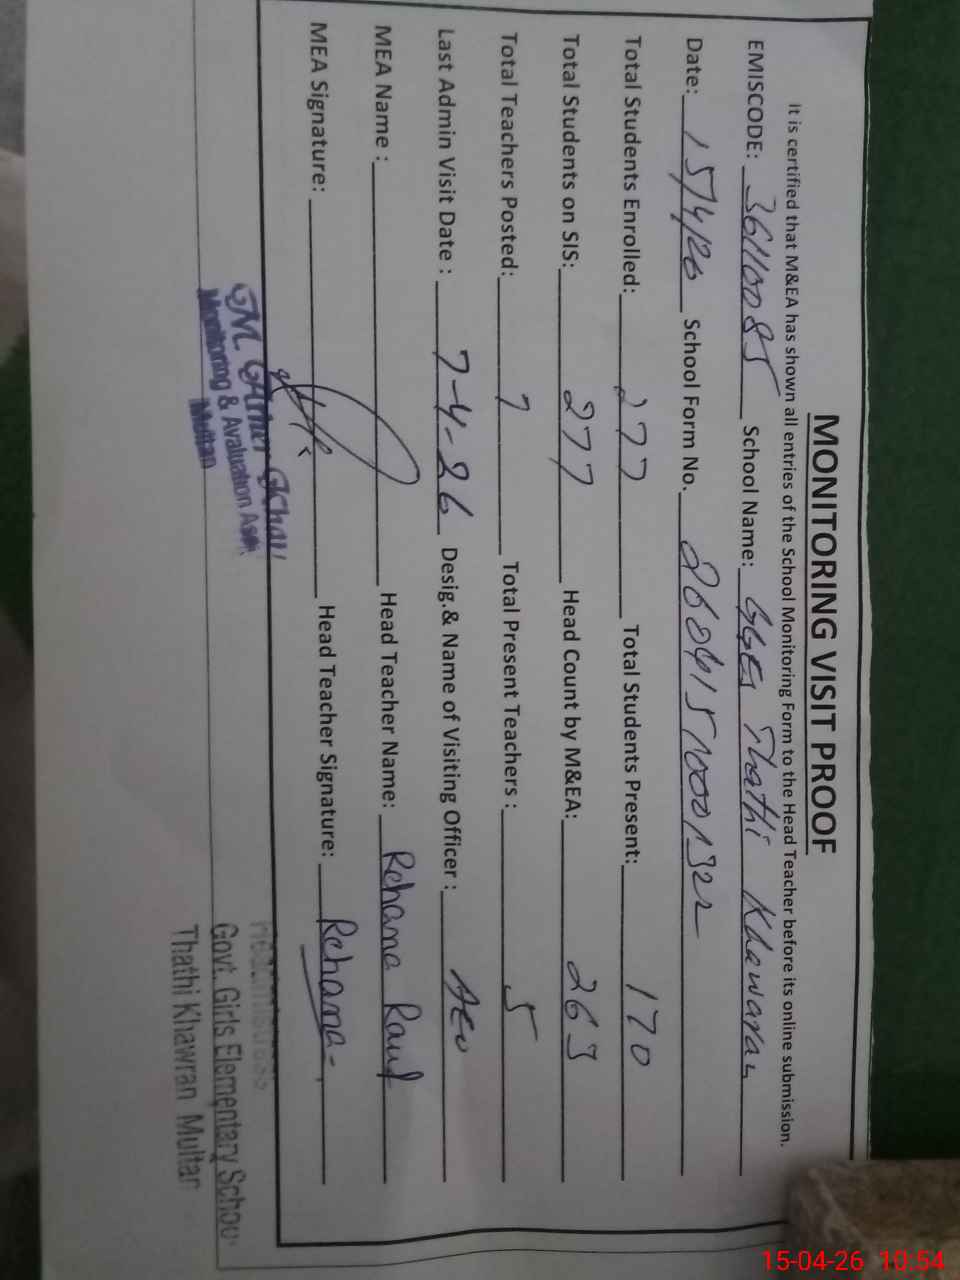 MONITORING VISIT PROOF
It is certified that M&EA has shown all entries of the School Monitoring Form to the Head Teacher before its online submission.
EMISCODE: 36110085 School Name: GGES Thathi Khawaran
Date: 15/4/26 School Form No. 26041510001322
Total Students Enrolled: 277 Total Students Present: 170
Total Students on SIS: 277 Head Count by M&EA: 263
Total Teachers Posted: 7 Total Present Teachers : 5
Last Admin Visit Date : 7-4-26 Desig.& Name of Visiting Officer : AEO
MEA Name : Head Teacher Name: Rehana Rauf
MEA Signature: Head Teacher Signature: Rehana
Monitoring & Avaluation
Multan
Govt. Girls Elementary School
Thathi Khawran Multan
15-04-26 10:54